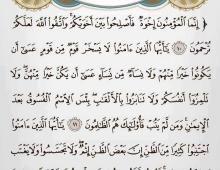 إِنَّمَا ٱلْمُؤْمِنُونَ إِخْوَةٌ فَأَصْلِحُوا۟ بَيْنَ أَخَوَيْكُمْ وَٱتَّقُوا۟ ٱللَّهَ لَعَلَّكُمْ
تُرْحَمُونَ ١٠ يَٰٓأَيُّهَا ٱلَّذِينَ ءَامَنُوا۟ لَا يَسْخَرْ قَوْمٌ مِّن قَوْمٍ عَسَىٰٓ أَن
يَكُونُوا۟ خَيْرًا مِّنْهُمْ وَلَا نِسَآءٌ مِّن نِّسَآءٍ عَسَىٰٓ أَن يَكُنَّ خَيْرًا مِّنْهُنَّ وَلَا
تَلْمِزُوٓا۟ أَنفُسَكُمْ وَلَا تَنَابَزُوا۟ بِٱلْأَلْقَٰبِ بِئْسَ ٱلِٱسْمُ ٱلْفُسُوقُ بَعْدَ
ٱلْإِيمَٰنِ وَمَن لَّمْ يَتُبْ فَأُو۟لَٰٓئِكَ هُمُ ٱلظَّٰلِمُونَ ١١ يَٰٓأَيُّهَا ٱلَّذِينَ ءَامَنُوا۟
ٱجْتَنِبُوا۟ كَثِيرًا مِّنَ ٱلظَّنِّ إِنَّ بَعْضَ ٱلظَّنِّ إِثْمٌ وَلَا تَجَسَّسُوا۟ وَلَا يَغْتَب